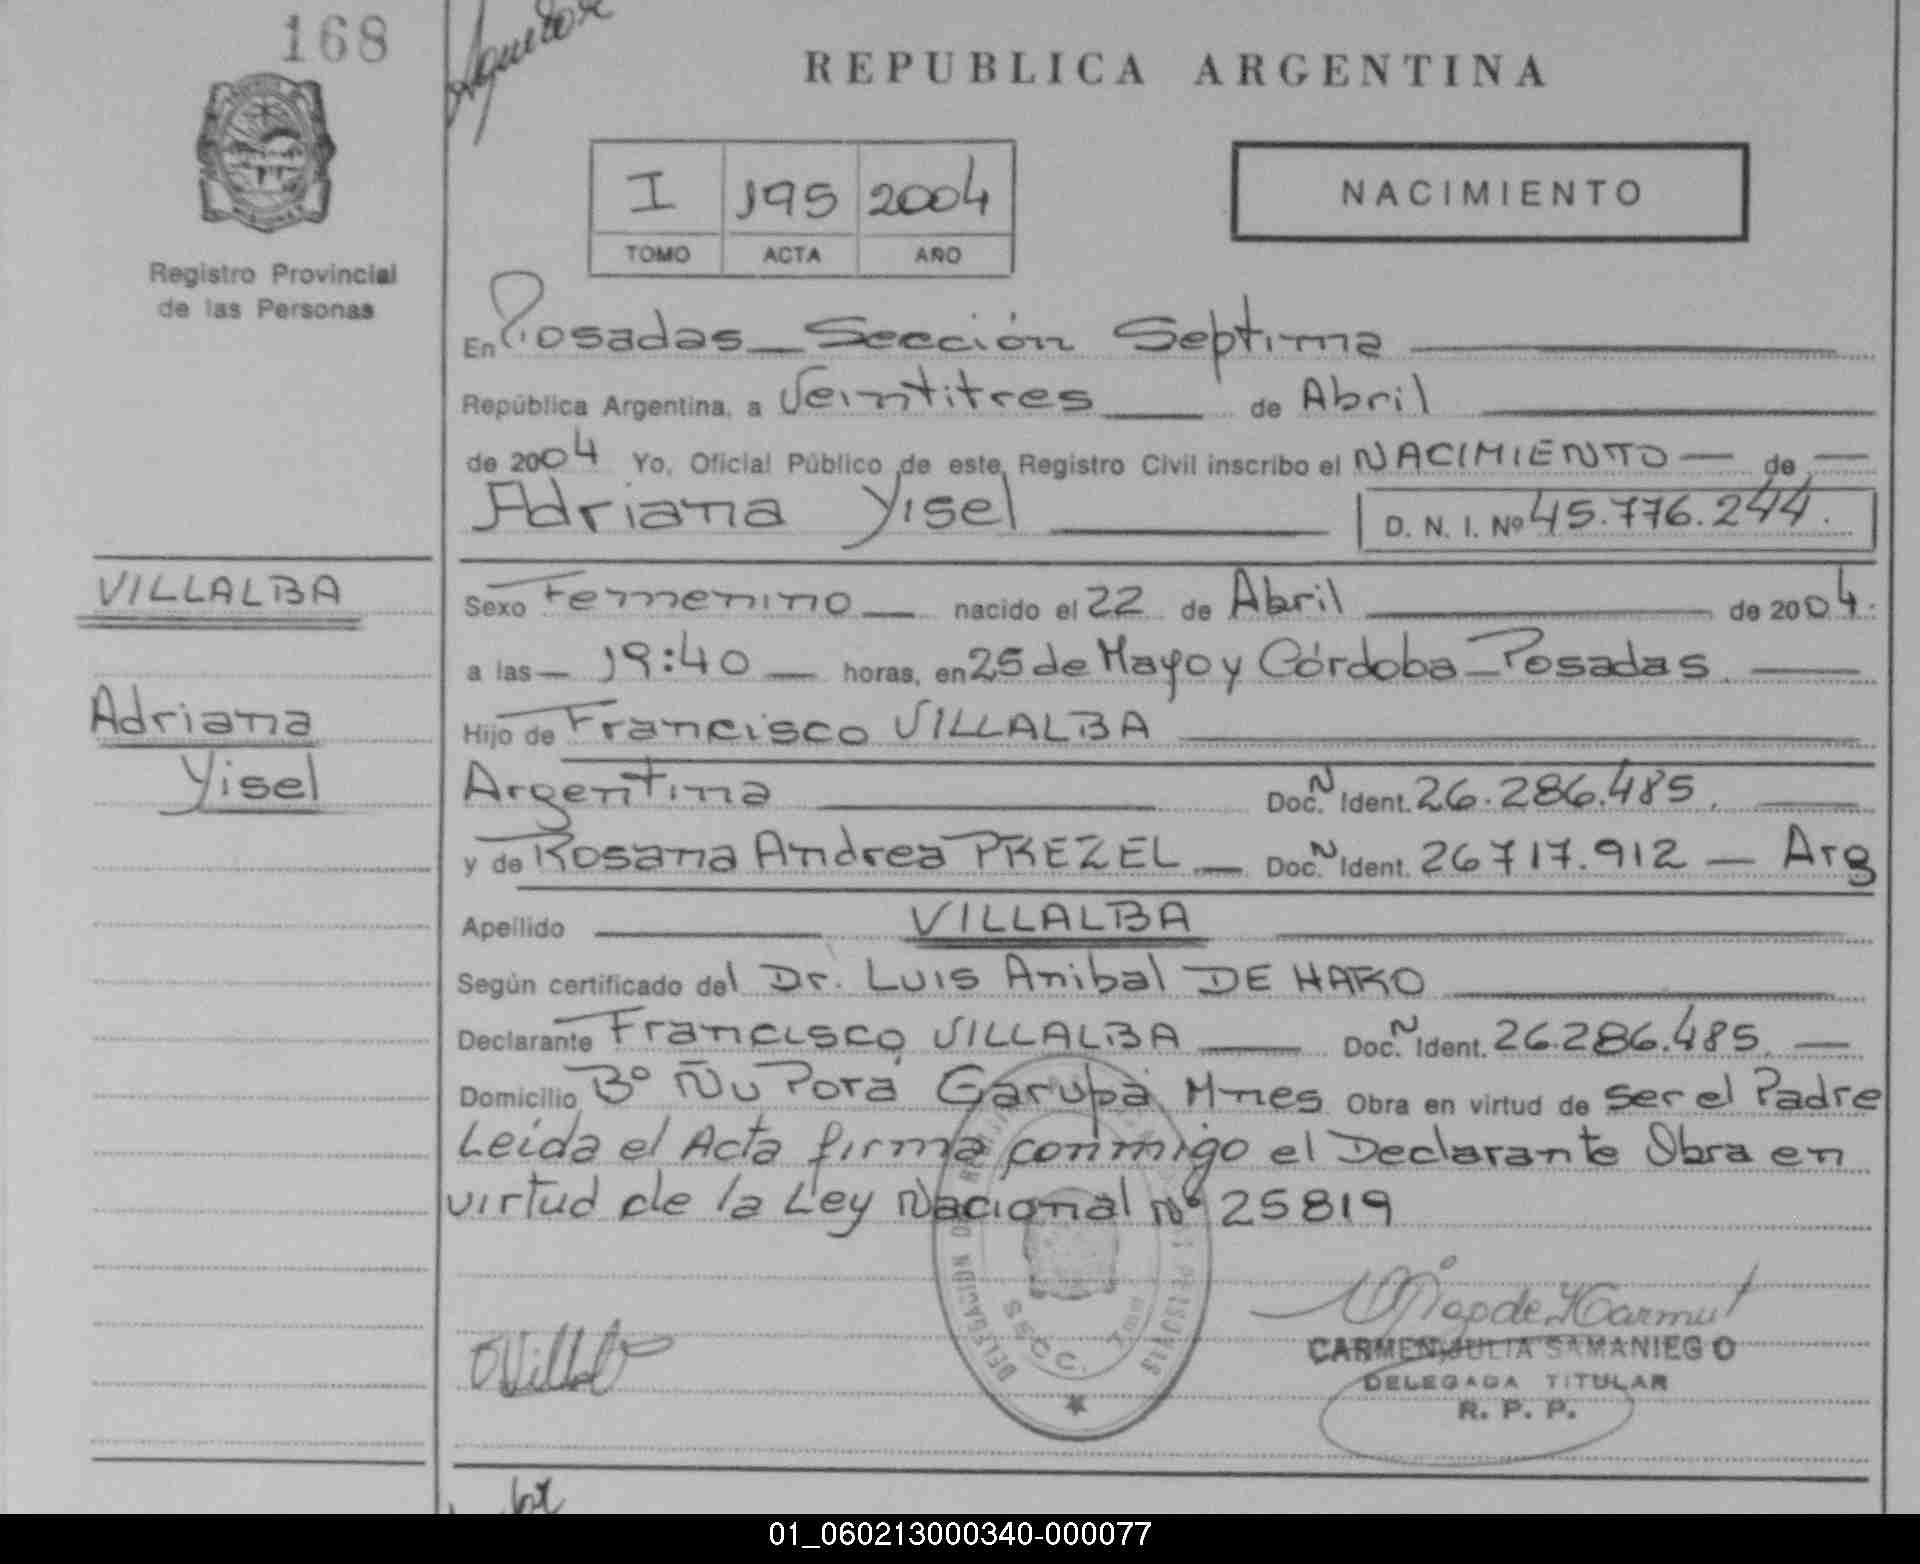 168
REPUBLICA ARGENTINA
I 195 2004
TOMO ACTA AÑO
NACIMIENTO
Registro Provincial
de las Personas
En Posadas - Sección Septima
República Argentina, a Veintitres de Abril
de 2004 Yo, Oficial Público de este Registro Civil inscribo el NACIMIENTO de
Adriana Yisel D. N. I. Nº 45.776.244.
VILLALBA
Adriana
Yisel
Sexo Femenino nacido el 22 de Abril de 2004.
a las - 19:40 - horas, en 25 de Mayo y Córdoba - Posadas
Hijo de Francisco VILLALBA
Argentina Doc. N Ident. 26.286.485.
y de Rosana Andrea PREZEL - Doc. N Ident. 26717.912 - Arg
Apellido VILLALBA
Según certificado del Dr. Luis Anibal DE HARO
Declarante Francisco VILLALBA Doc. N Ident. 26.286.485.
Domicilio Bº Ñu Porá Garupá Mnes Obra en virtud de ser el Padre
Leida el Acta firma conmigo el Declarante Obra en
virtud de la Ley Nacional Nº 25819
CARMEN JULIA SAMANIEGO
DELEGADA TITULAR
R. P. P.
01_060213000340-000077